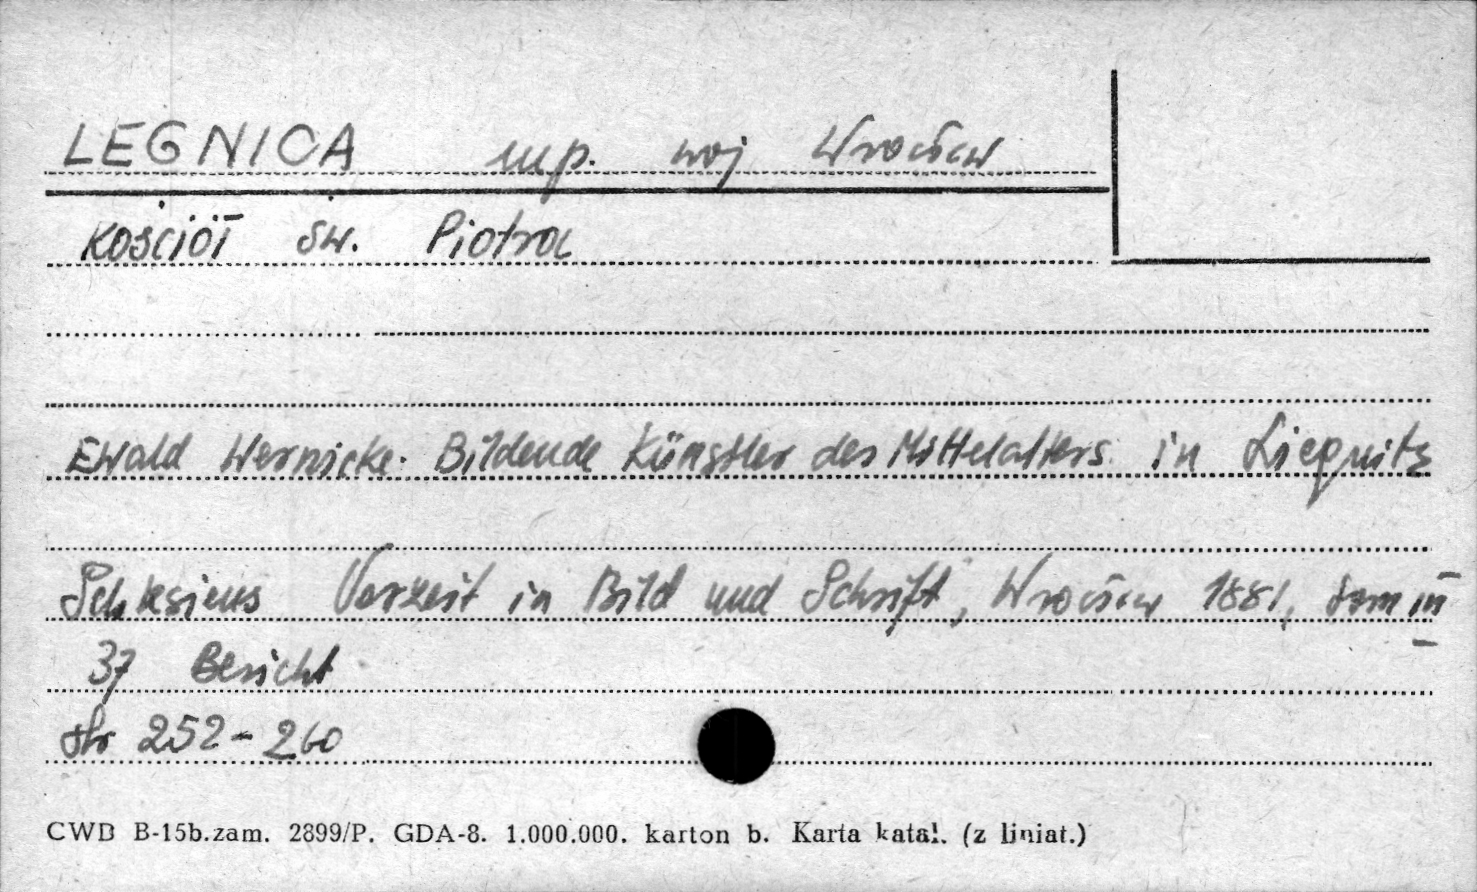 LEGNICA mp. woj Wrocław
Kościół św. Piotra
Ewald Wernicke. Bildende Künstler des Mittelalters in Liegnitz
Schlesiens Vorzeit in Bild und Schrift, Wrocław 1881, tom III
37 Bericht
str 252-260
CWD B-15b.zam. 2899/P. GDA-8. 1.000.000. karton b. Karta katal. (z liniat.)